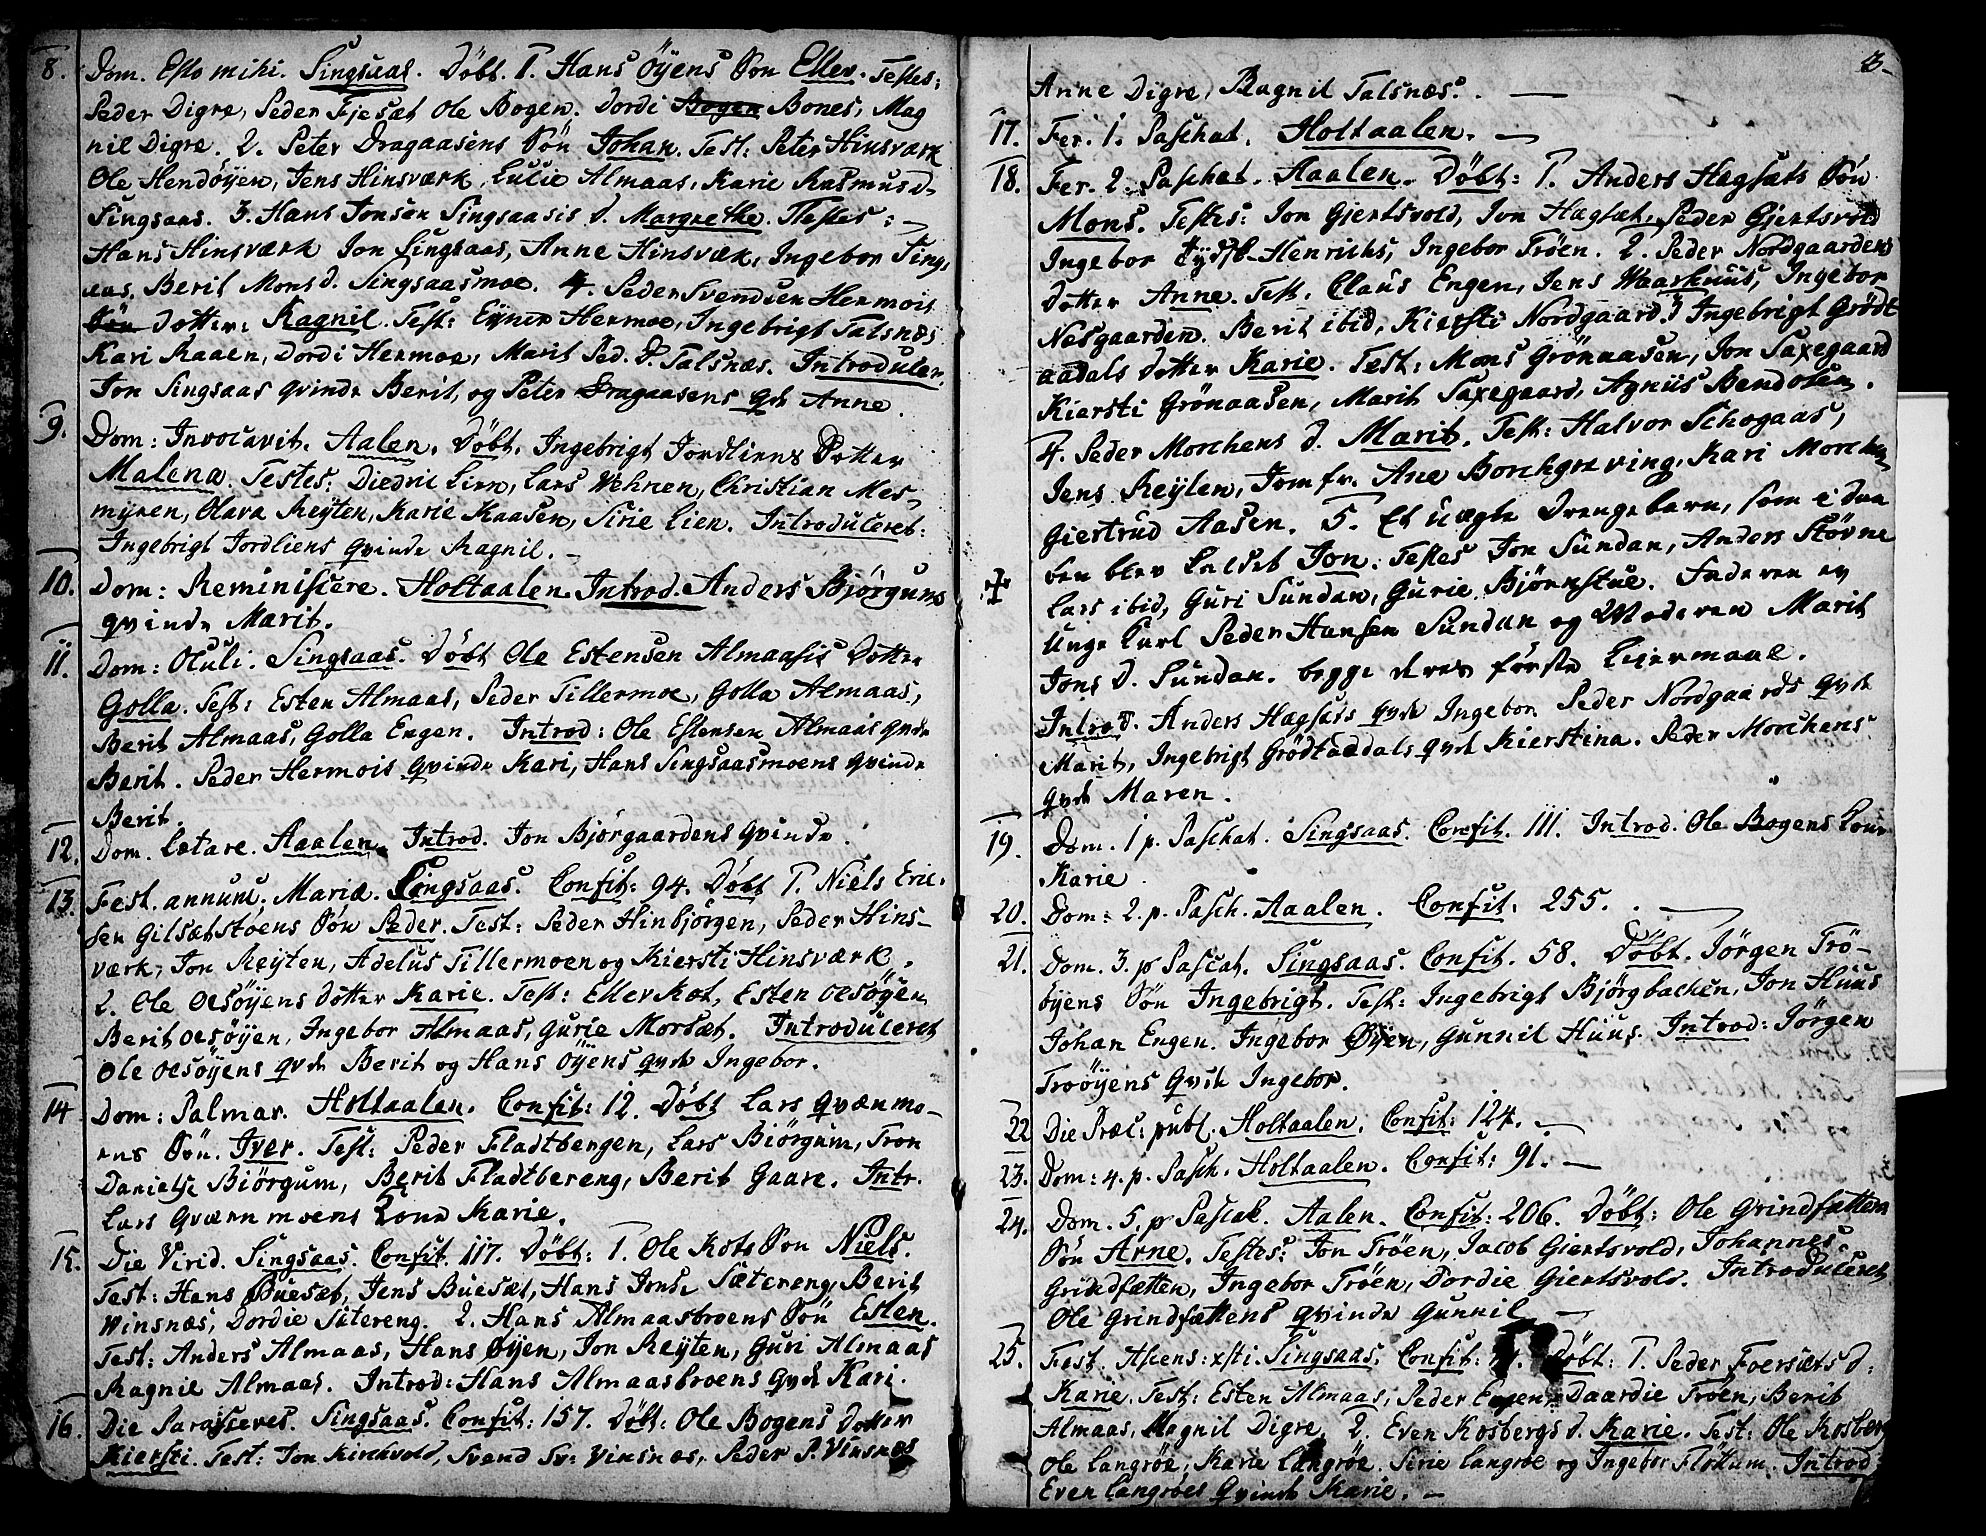 8. Dom. Esto mihi. Singsaas. Döbt. 1. Hans Öÿens Sön Ellev. Testes:
Peder Digre, Peder Fjesæt Ole Bogen. Dordi Bogen Bones, Mag
nil Digre. 2. Peter Dragaasens Sön Johan. Test: Peter Hinsværk
Ole Hendöyen, Jens Hinsværk, Lucie Almaas, Karie Rasmusd.
Singsaas. 3. Hans Jonsen Singsaasis d. Margrethe. Testes:
Hans Hinsværk Jon Singsaas, Anne Hinsvæk, Ingebor Sing,
aas, Berit Monsd. Singsaasmoe. 4. Peder Svendsen Hermois
Sön Dotter: Ragnil. Test: Eyner Hermoe, Ingebrigt Talsnæs
Kari Raaen, Dordi Hermoe, Marit Ped. D. Talsnæs. Introducer.
Jon Singsaas qvinde Berit, og Peter Dragaasens qvd Anne.
9. Dom: Invocavit. Aalen. Döbt. Ingebrigt Jordliens Dotter
Malena. Testes: Diedric Lien, Lars Wehnen, Christian Mes-
mÿren, Olava Reÿten, Karie Kaasen, Sirie Lien. Introduceret:
Ingebrigt Jordliens qvinde Ragnil.
10. Dom: Reminiscere. Holtaalen. Introd. Anders Bjørgums
qvinde Marit.
11. Dom: Oculi. Singsaas. Döbt Ole Estensen Almaasis Dotter
Golla. Test: Esten Almaas, Peder Tillermoe, Golla Almaas,
Berit Almaas, Golla Engen. Introd: Ole Estensen Almaas qvde
Berit. Peder Hermois qvinde Kari, Hans Singsaasmoens qvinde
Berit.
12. Dom. Lætare. Aalen. Introd. Jon Bjørgaardens qvinde
13. Fest. annunt. Mariæ. Singsaas. Confit: 94. Döbt 1. Niels Eric-
sen Gilsætstoens Sön Peder. Test: Peder Hinbjörgen, Peder Hins-
værk, Jon Reÿten, Adelus Tillermoen og Kiersti Hinsværk.
2. Ole Oesöÿens Dotter Karie. Test: Ellev Kot, Esten Oesöÿen
Berit Oesöÿen, Ingebor Almaas, Gurie Morsæt. Introduceret
Ole Oesöÿens qvde Berit og Hans Öÿens qvde Ingebor.
14 Dom: Palmar. Holtaalen. Confit: 12. Döbt Lars Qvænmo-
ens Sön. Iver. Test: Peder Fladtbergen, Lars Biörgum, Tron
Danielse Biörgum, Berit Fladtbereng, Berit Gaare. Intr.
Lars Qværnmoens Kone Karie.
15. Die Virid. Singsaas. Confit 117. Döbt: 1. Ole Kots Sön Niels.
Test: Hans Buesæt, Jens Buesæt, Hans Jonse Sætereng, Berit
Winsnæs, Dordie Sætereng. 2. Hans Almaasbroens Sön Esten.
Test: Anders Almaas, Hans Öÿen, Jon Reÿten, Guri Almaas
Ragnil Almaas. Introd: Hans Almaasbroens qvde Kari.
16. Die Parasceves. Singsaas. Confit: 157. Döbt: Ole Bogens Dotter
Kiersti. Test: Jon Kirchvold, Svend Sv: Vinsnes, Peder P. Vinsnes
3.
Anne Digre, Ragnil Talsnæs.
17. Fer. 1. Paschat. Holtaalen.
18. Fer. 2 Paschat. Aalen. Döbt: 1. Anders Hægsæts Sön
Mons. Testes: Jon Gjertsvold, Jon Hægsæt, Peder Gjertsvold
Ingebor Tydsk-Henrichs, Ingebor Tröen. 2. Peder Nordgaardens
Dotter Anne. Test. Claus Engen, Jens Waarhuus, Ingebor
Nesgaarden. Berit ibid, Kiersti Nordgaard. 3 Ingebrigt Grödt
aadals Dotter Karie. Test: Mons Grönaasen, Jon Saxegaard
Kiersti Grönaasen, Marit Saxegaard, Agniis Bendosen.
4. Peder Morchens d. Marit. Test: Halvor Schogaas,
Jens Reÿten, Jomfr. Ane Borchgreving, Kari Morchen
Giertrud Aasen. 5. Et uægte Drengebarn, som i Daa
ben blev kaldet Jon. Testes Jon Sundan, Anders Stövne
Lars ibid, Guri Sundan, Gurie Björnstue. Faderen er
Unge Karl Peder Hansen Sundan og Moderen Marit
Jons D. Sundan. begge deres første Leiermaal.
Introd. Anders Hægsæts qvde Ingebor. Peder Nordgaards qvde
Marit, Ingebrigt Grödtaadals qvde Kierstina. Peder Morchens
qvde Maren.
19. Dom. 1 p. Paschat. Singsaas. Confit. 111. Introd. Ole Bogens Kone
Karie
20. Dom: 2. p. Pasch. Aalen. Confit. 255.
21. Dom. 3. p Pascat. Singsaas. Confit. 58. Döbt. Jörgen Trö-
öyens Sön Ingebrigt. Test: Ingebrigt Björgbachen, Jon Huus
Johan Engen. Ingebor Öyen, Gunnil Huus. Introd: Jörgen
Troöyens qvde Ingebor.
22 Die Præc: publ. Holtaalen. Confit: 124.
23. Dom: 4. p. Pasch. Holtaalen. Confit: 91.
24. Dom. 5. p Pascat. Aalen. Confit: 206. Döbt: Ole Grindsættens
Sön Arne. Testes: Jon Tröen, Jacob Giertsvold, Johannes
Grindsætten, Ingebor Tröen, Dordie Giertsvold. Introduceret
Ole Grindsættens qvinde Gunnil
25. Fest. Ascens: xsti. Singsaas. Confit: Döbt: 1. Peder Foersæts d:
Karie. Test: Esten Almaas, Peder Engen, Daardie Tröen, Berit
Almaas, Magnil Digre. 2. Even Kosbergs d. Karie. Test: Ole Kosberg
Ole Langröe, Karie Langröe. Sirie Langröe og Ingebor Flöttum. Introd
Even Langröes qvinde Karie.